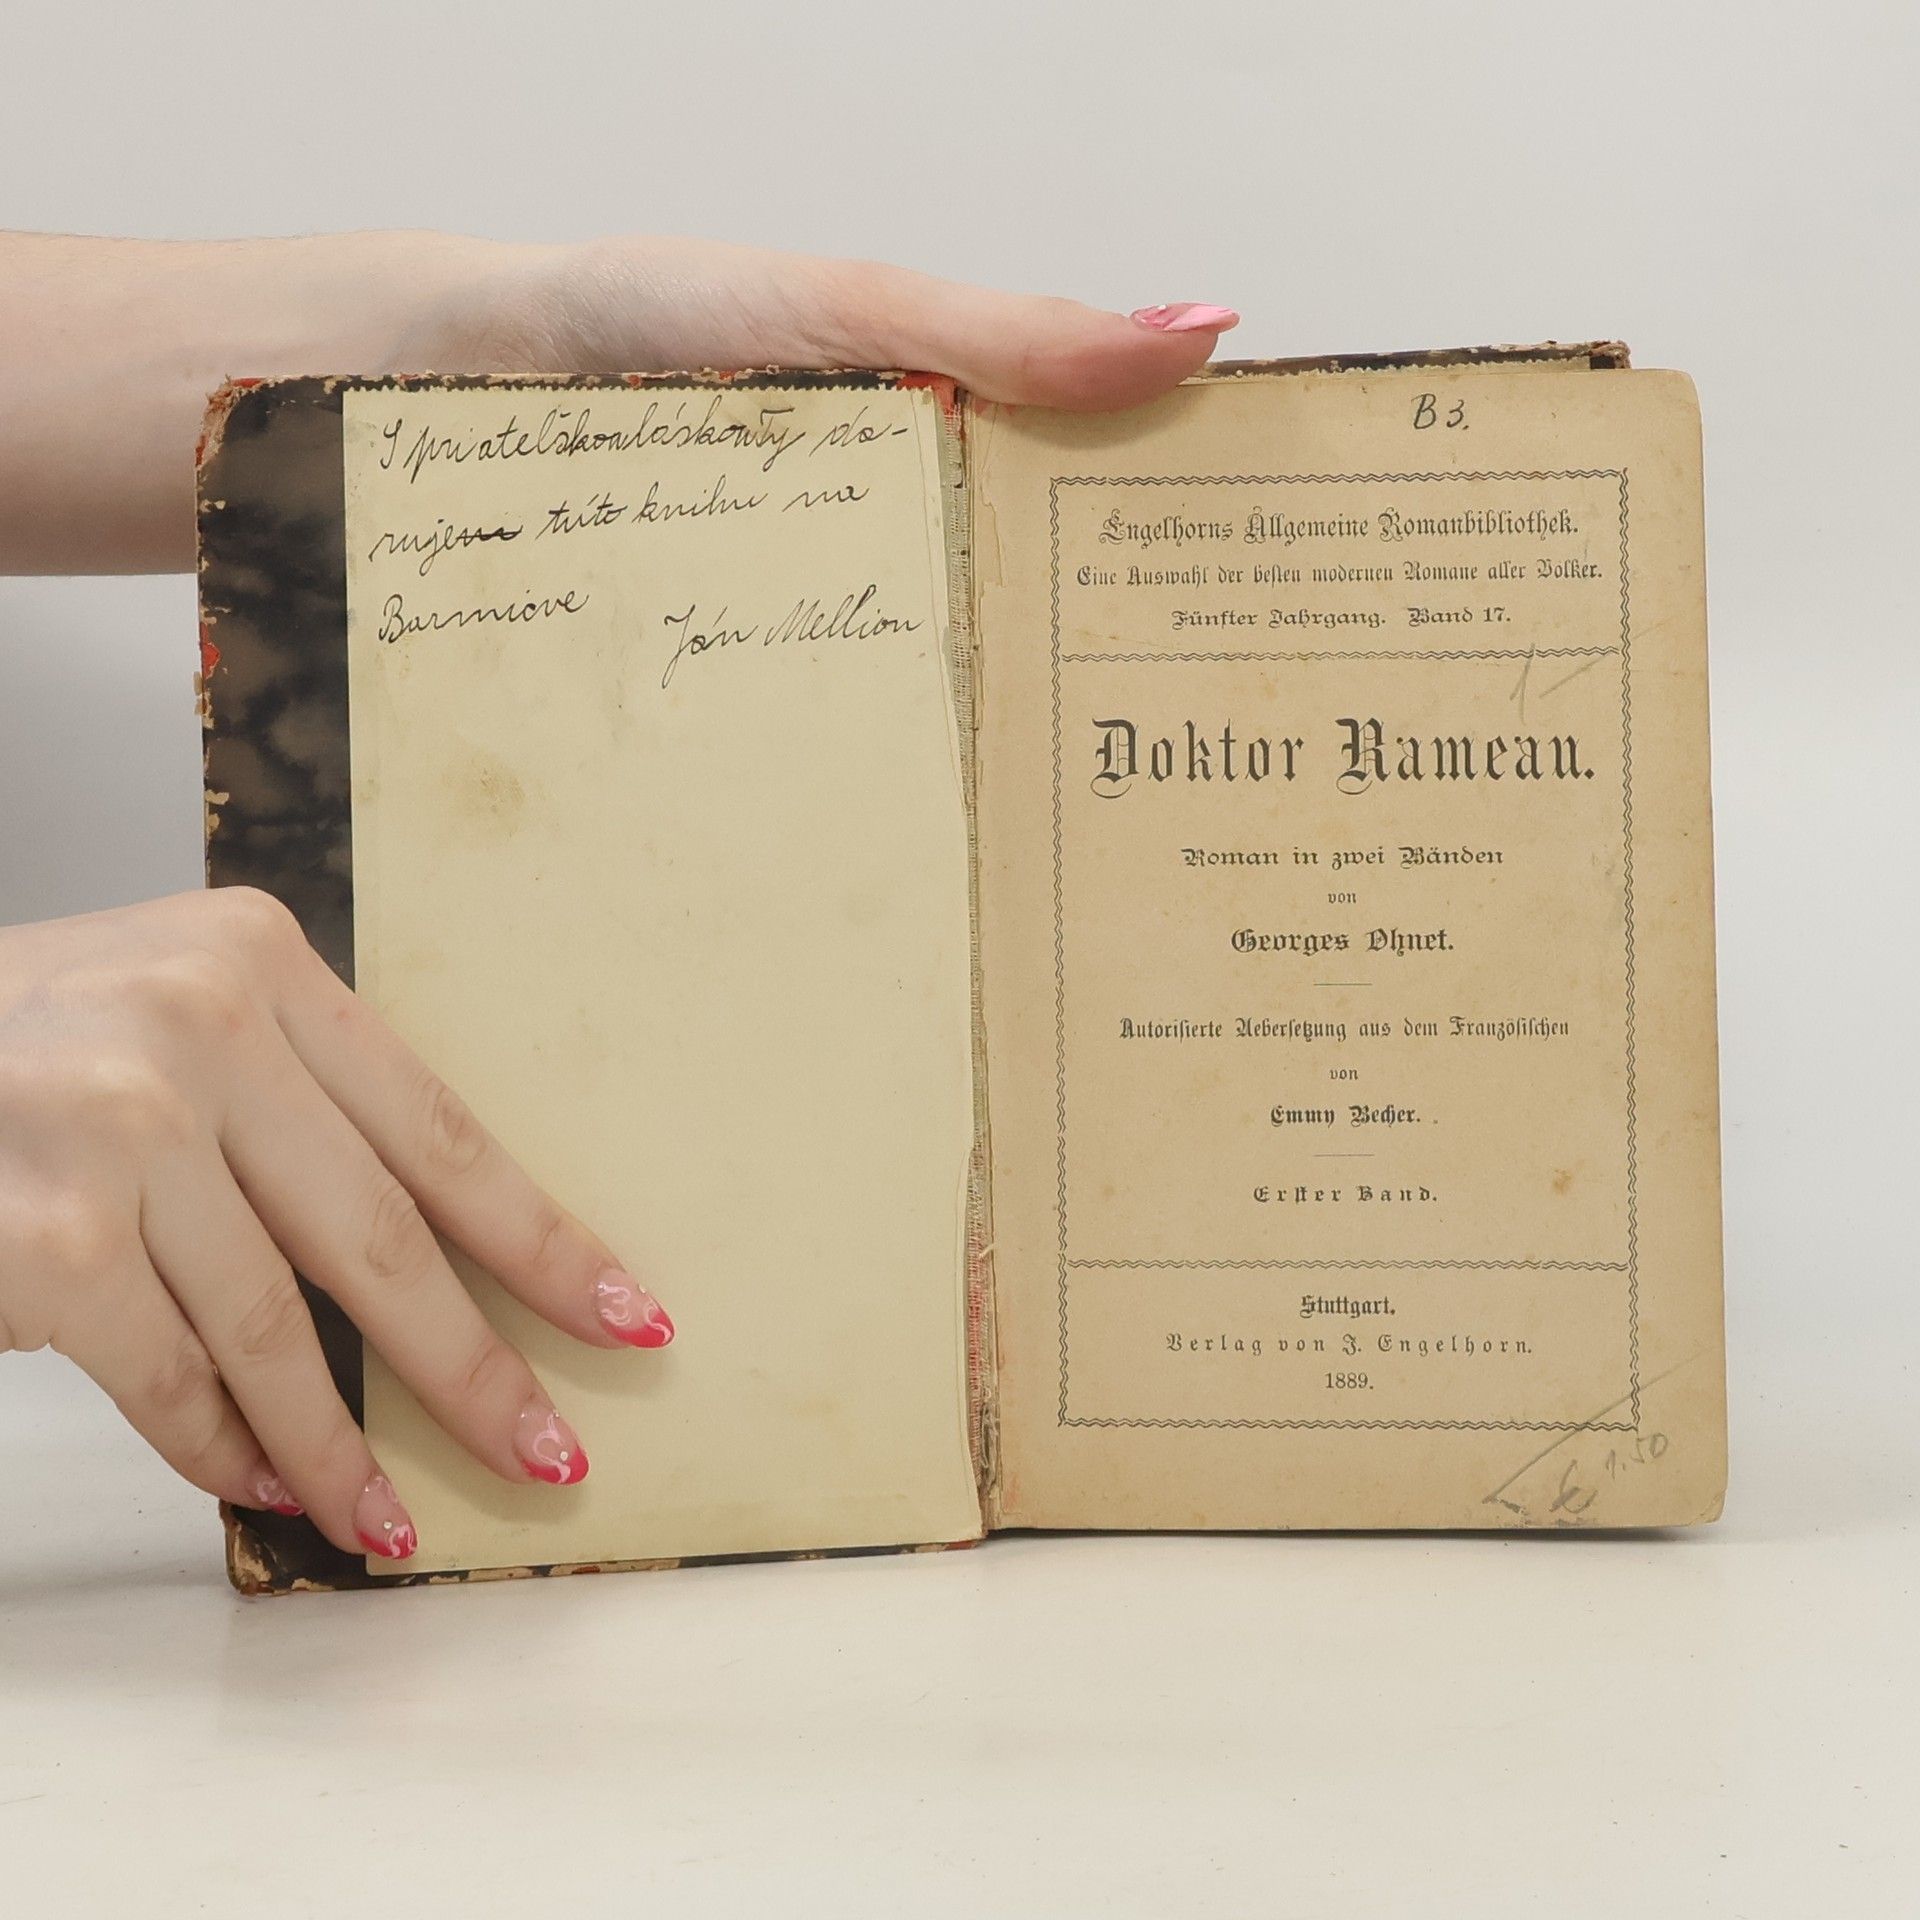 S priateľskou láskou Ty da-
rujem túto knihu na
Ján Mellion
B 3.
Engelhorns Allgemeine Romanbibliothek.
Eine Auswahl der besten modernen Romane aller Völker.
Fünfter Jahrgang. Band 17.
Doktor Rameau.
Roman in zwei Bänden
von
Georges Ohnet.
Autorisierte Uebersetzung aus dem Französischen
von
Emmy Becher.
Erster Band.
Stuttgart.
Verlag von J. Engelhorn.
1889.
1.50